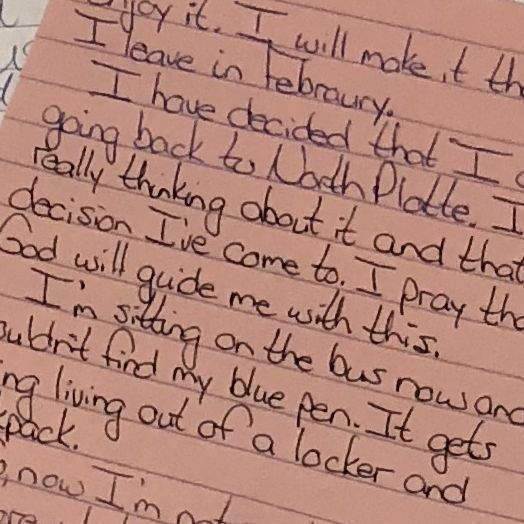 enjoy it. I will make it
I leave in Febraury.
I have decided that I
going back to North Platte. I
really thinking about it and that
decision I've come to. I pray
God will guide me with this.
I'm sitting on the bus now and
find my blue pen. It gets
living out of a locker and
pack.
now I'm